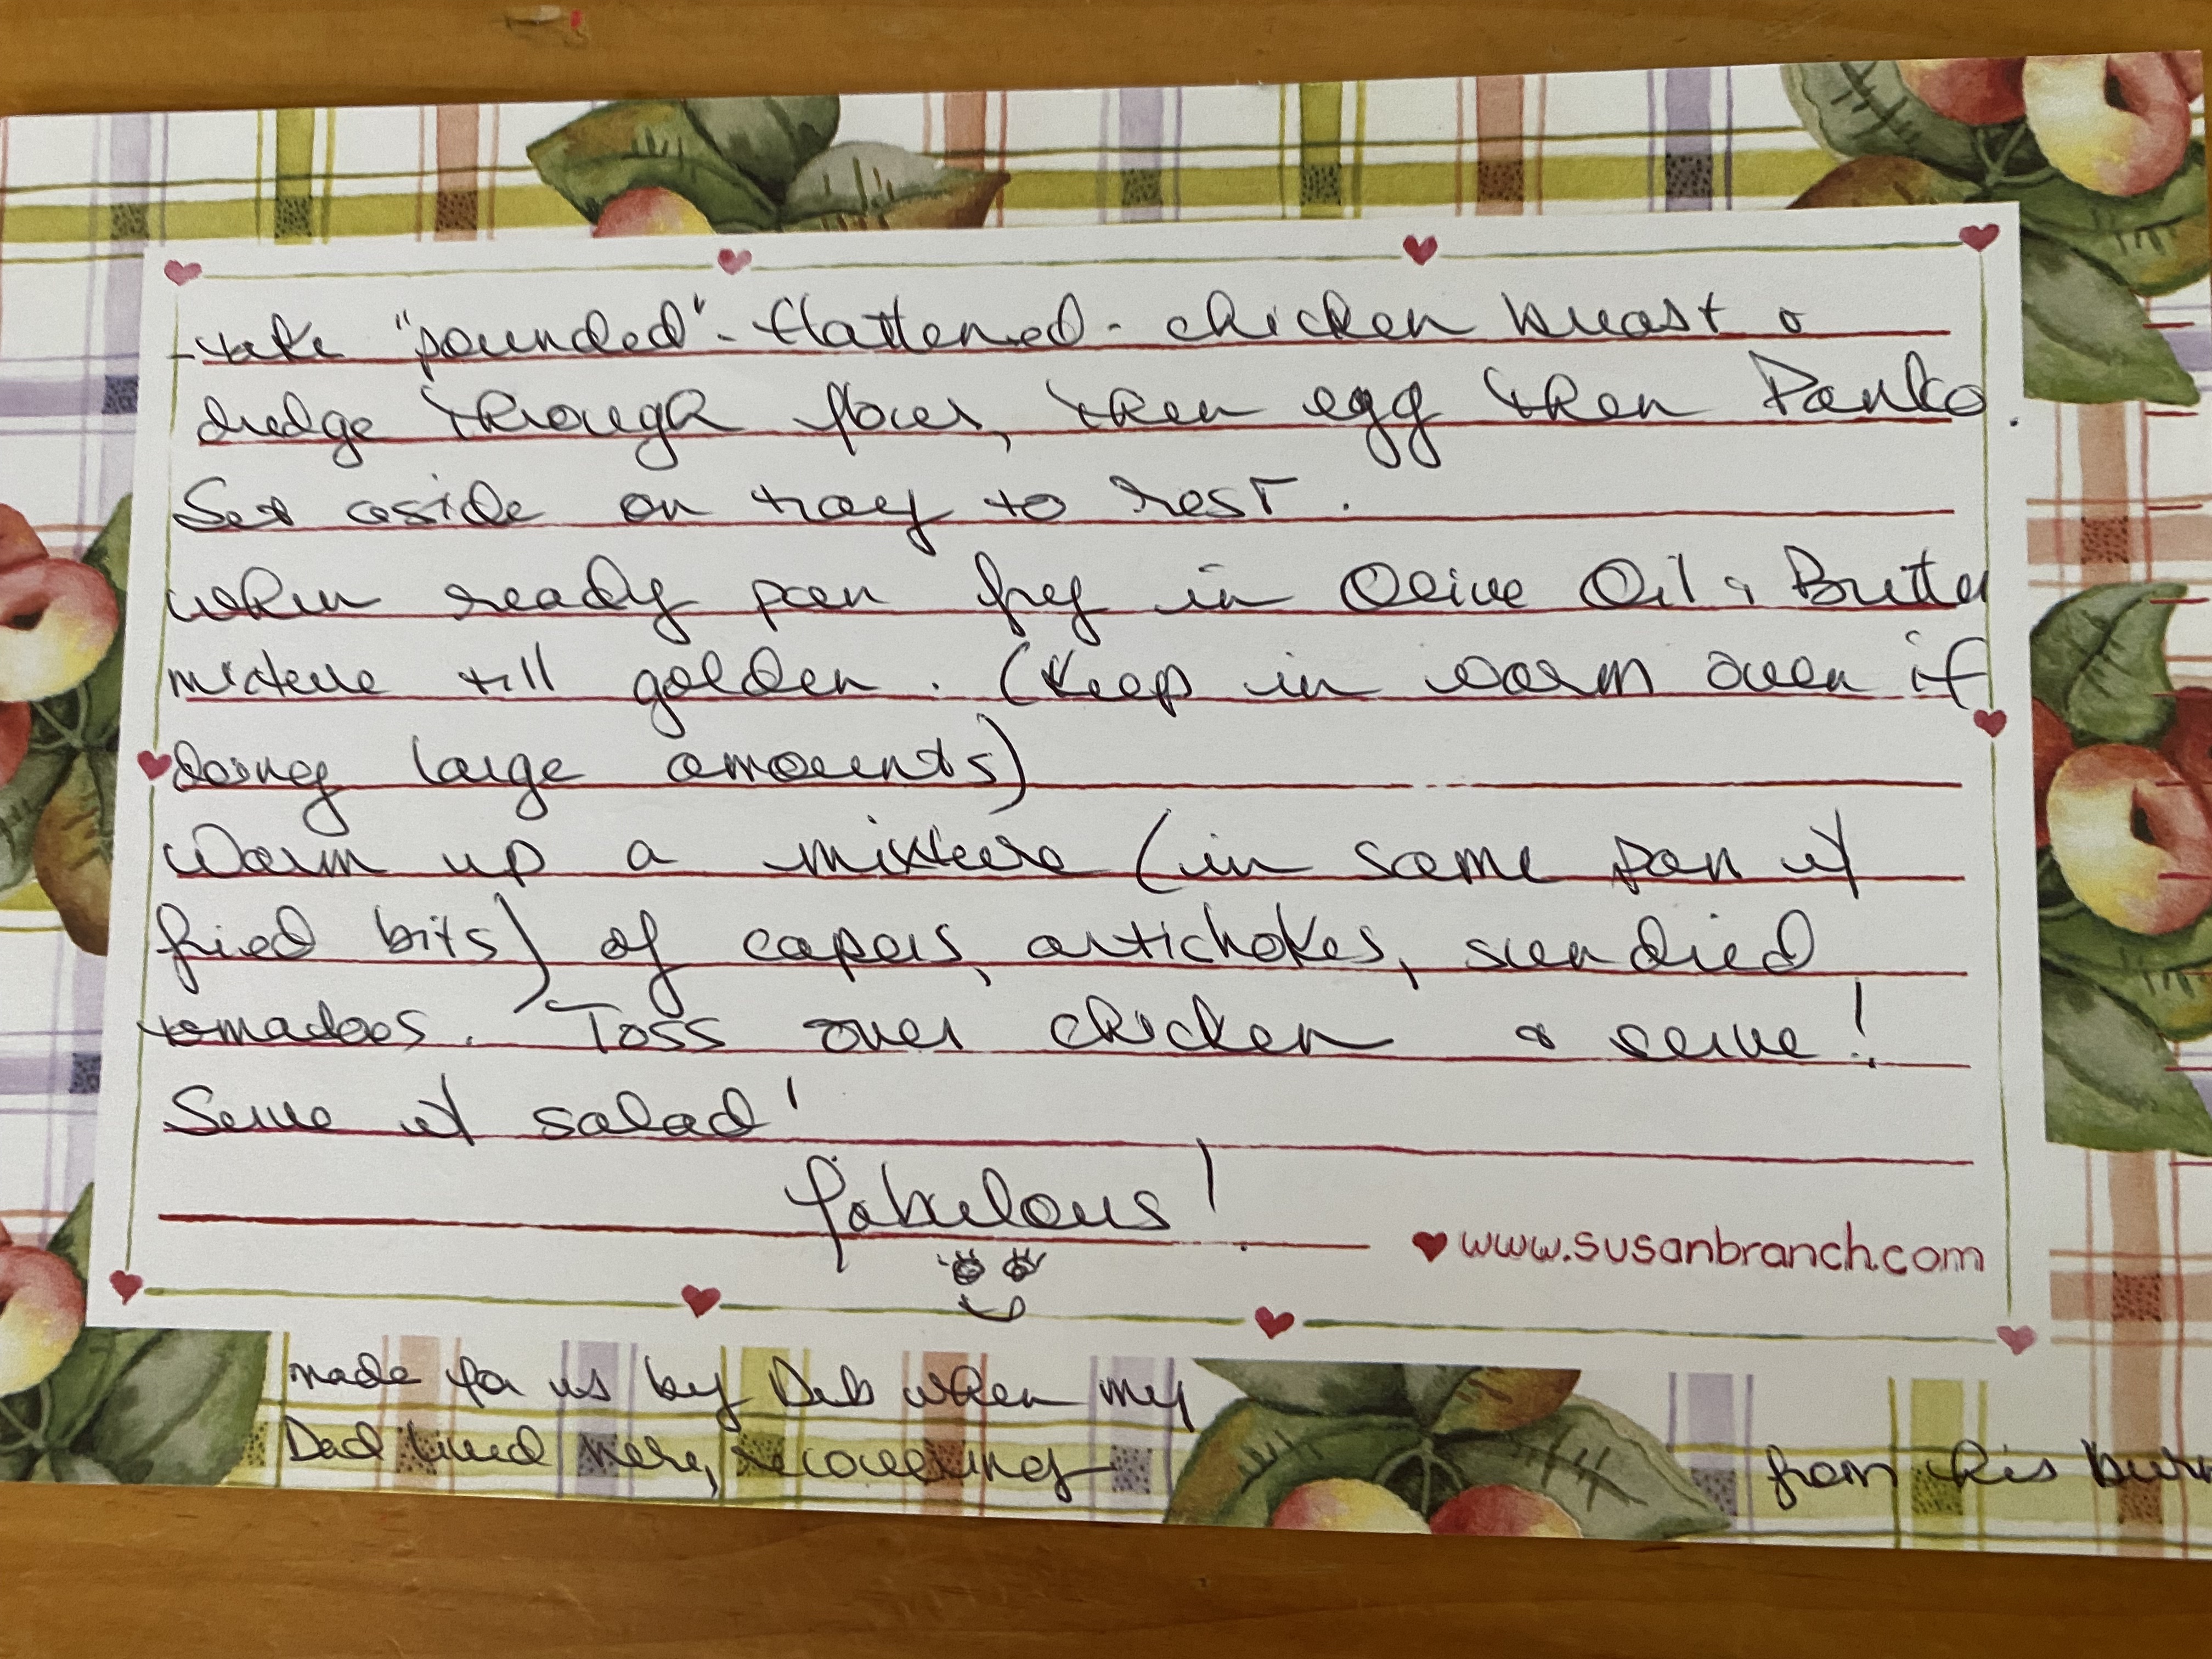 - take "pounded" - flattened - chicken breast &
dredge through flour, then egg then Panko.
Set aside on tray to rest.
when ready pan fry in Olive Oil & Butter
mixture till golden. (Keep in warm oven if
doing large amounts)
Warm up a mixture (in same pan w/
fried bits) of capers, artichokes, sun dried
tomadoes. Toss over chicken & serve!
Serve w/ salad!
fabulous!
www.susanbranch.com
made for us by Deb when my
Dad lived here, recovering from his